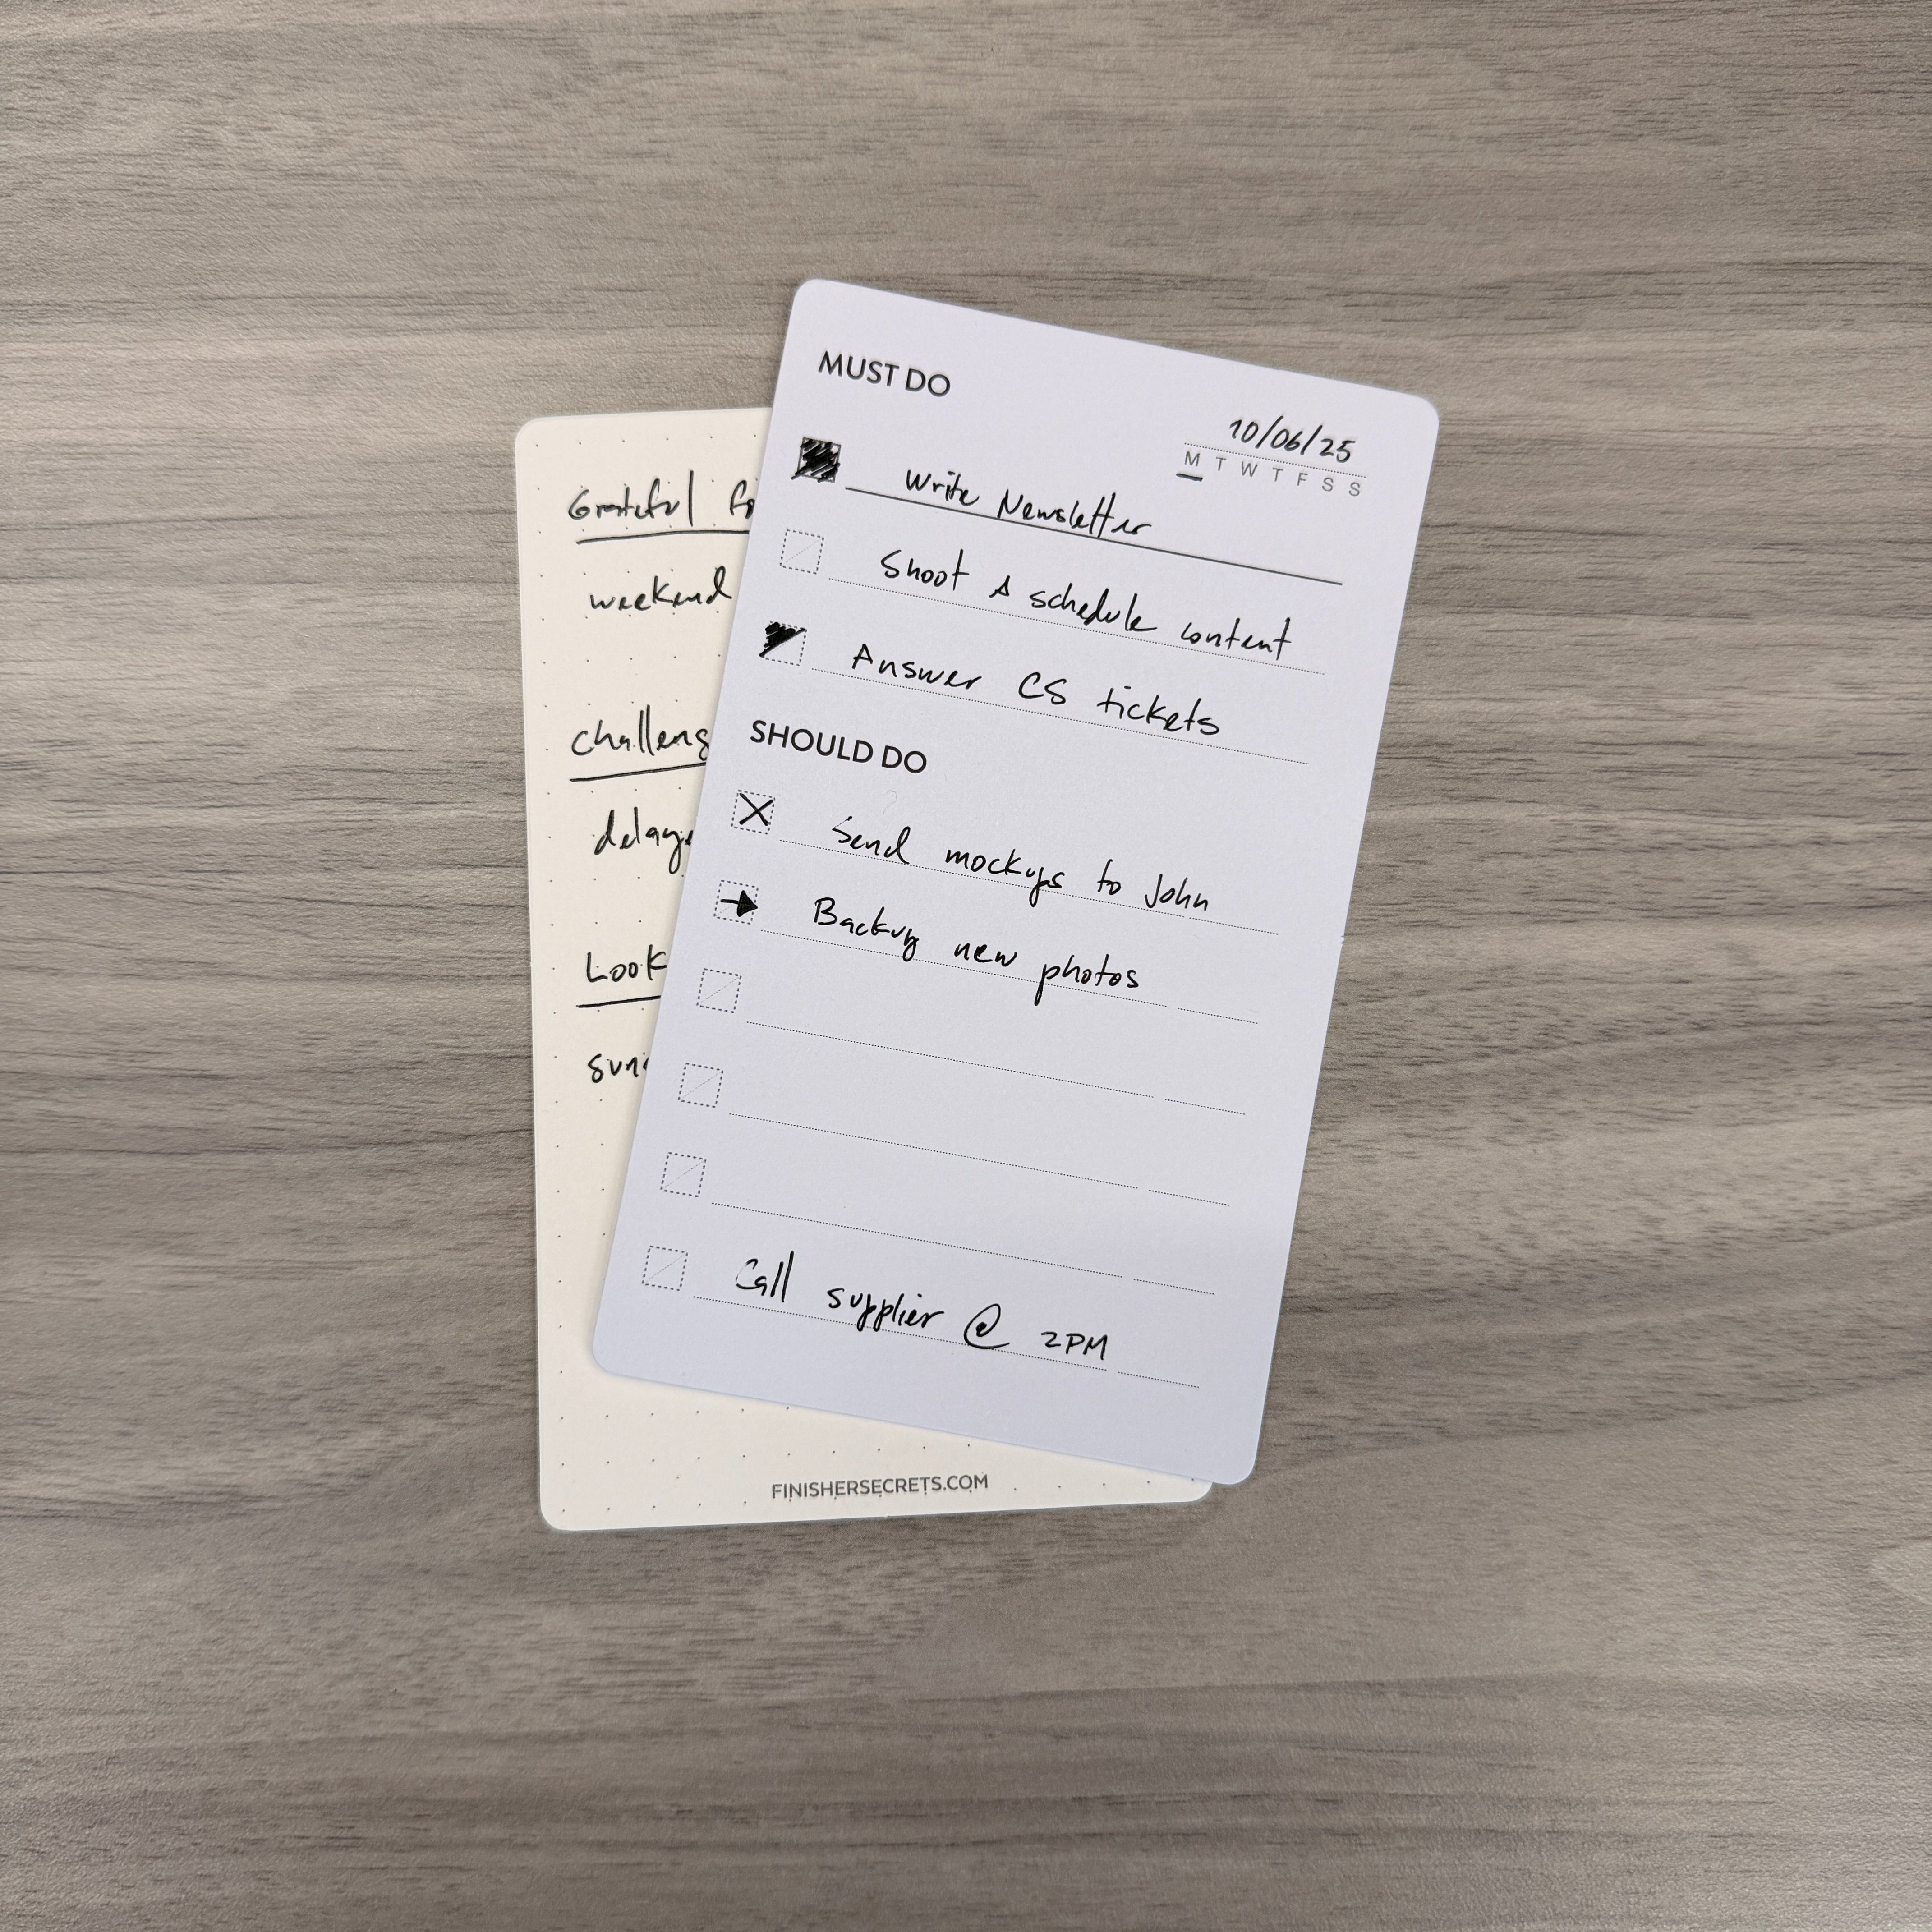 MUST DO
10/06/25
M T W T F S S
Write Newsletter
Shoot & schedule content
Answer CS tickets
SHOULD DO
Send mockups to John
Backup new photos
Call supplier @ 2PM
Grateful fo
weekend
challeng
delays
Look
sun
FINISHERSECRETS.COM